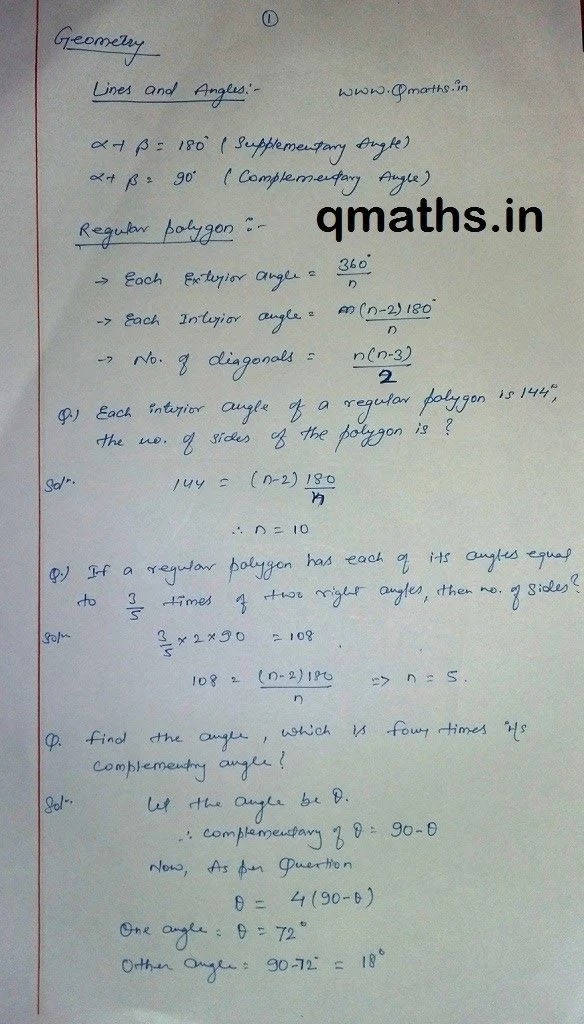 1
Geometry
Lines and Angles:-
www.Qmaths.in
α+ β = 180° ( Supplementary Angle)
α+ β = 90° ( Complementary Angle)
qmaths.in
Regular polygon :-
→ Each Exterior angle = 360°/n
→ Each Interior angle = (n-2) 180°/n
→ No. of diagonals = n(n-3)/2
Q.) Each interior angle of a regular polygon is 144°,
the no. of sides of the polygon is ?
Soln. 144 = (n-2) 180/n
∴ n = 10
Q.) If a regular polygon has each of its angles equal
to 3/5 times of two right angles, then no. of sides?
Soln 3/5 × 2 × 90 = 108
108 = (n-2) 180/n => n = 5.
Q. find the angle, which is four times its
complementry angle?
Soln. Let the angle be θ.
∴ complementary of θ = 90-θ
Now, As per Question
θ = 4(90-θ)
One angle = θ = 72°
Other angle = 90-72° = 18°